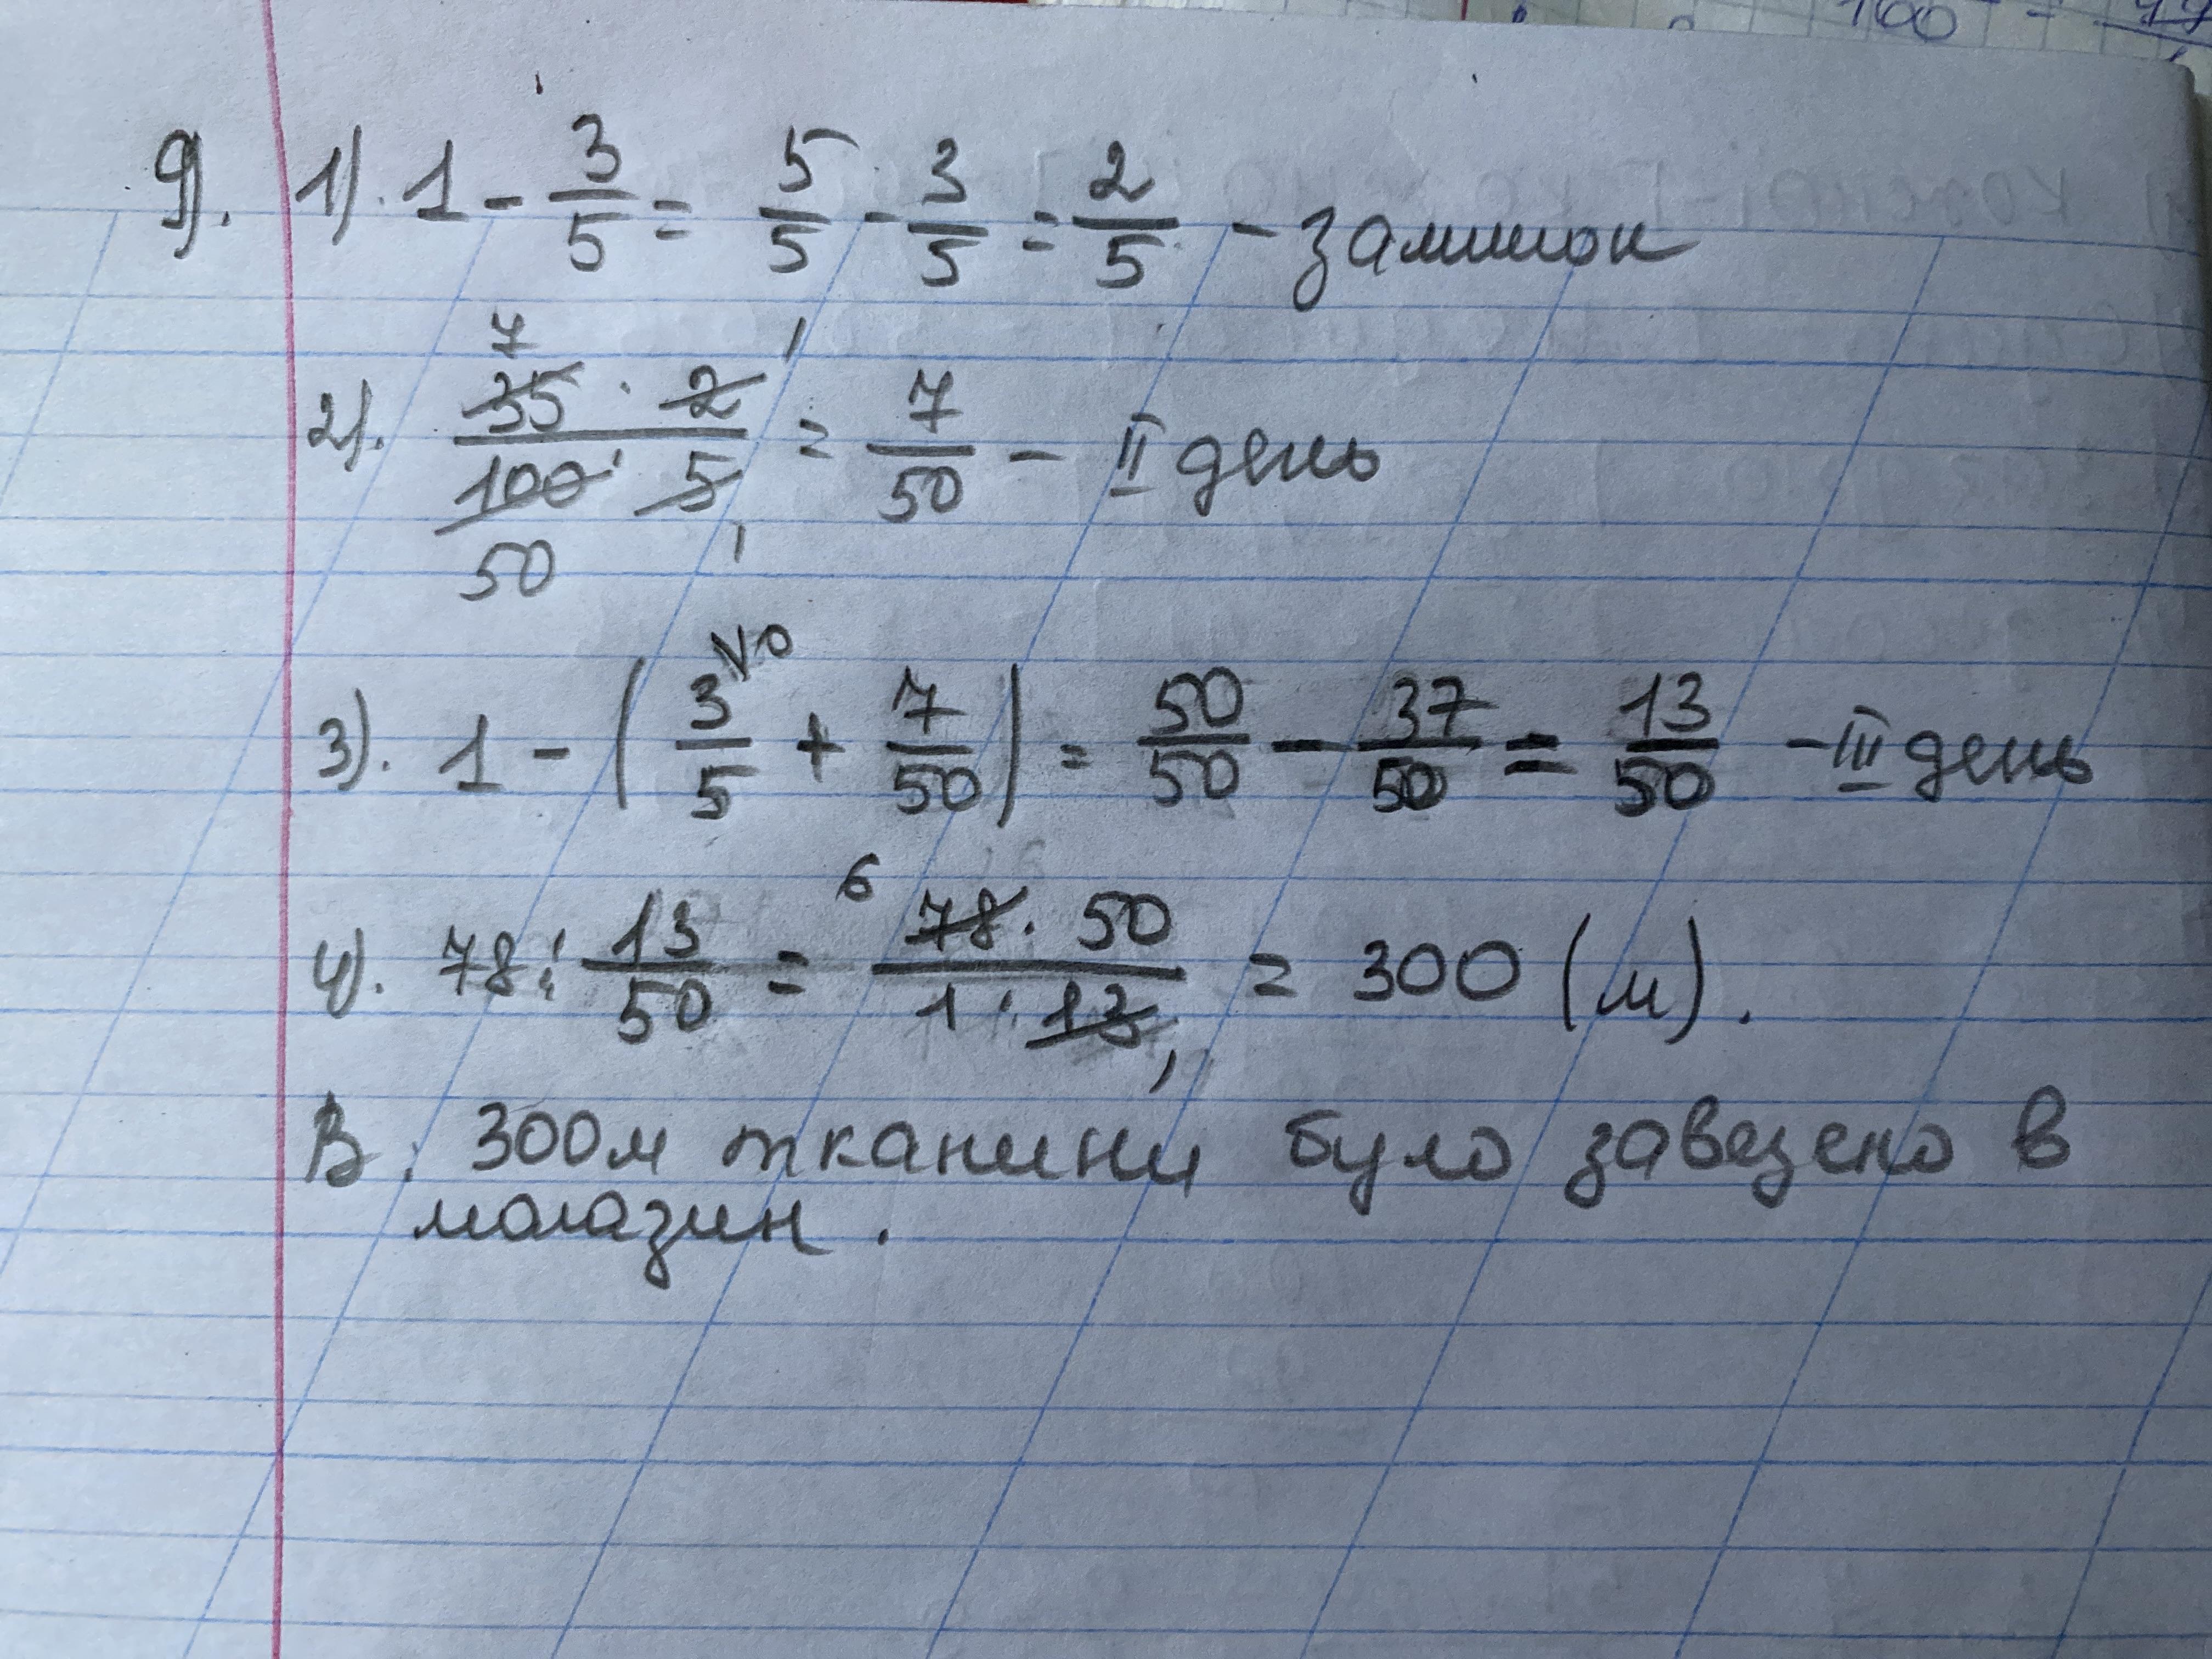 9). 1). 1 - 3/5 = 5/5 - 3/5 = 2/5 - залишок
2). 35 · 2 / 100 · 5 = 7/50 - II день
7 1 50 1
3). 1 - (3/5 \10 + 7/50) = 50/50 - 37/50 = 13/50 - III день
4). 78 : 13/50 = 78 · 50 / 1 · 13 = 300 (м).
6 1
В. 300м тканини було завезено в
магазин.
100